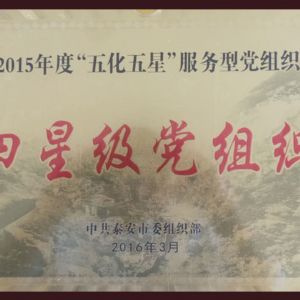 2015年度“五化五星”服务型党组织
四星级党组织
中共泰安市委组织部
2016年3月